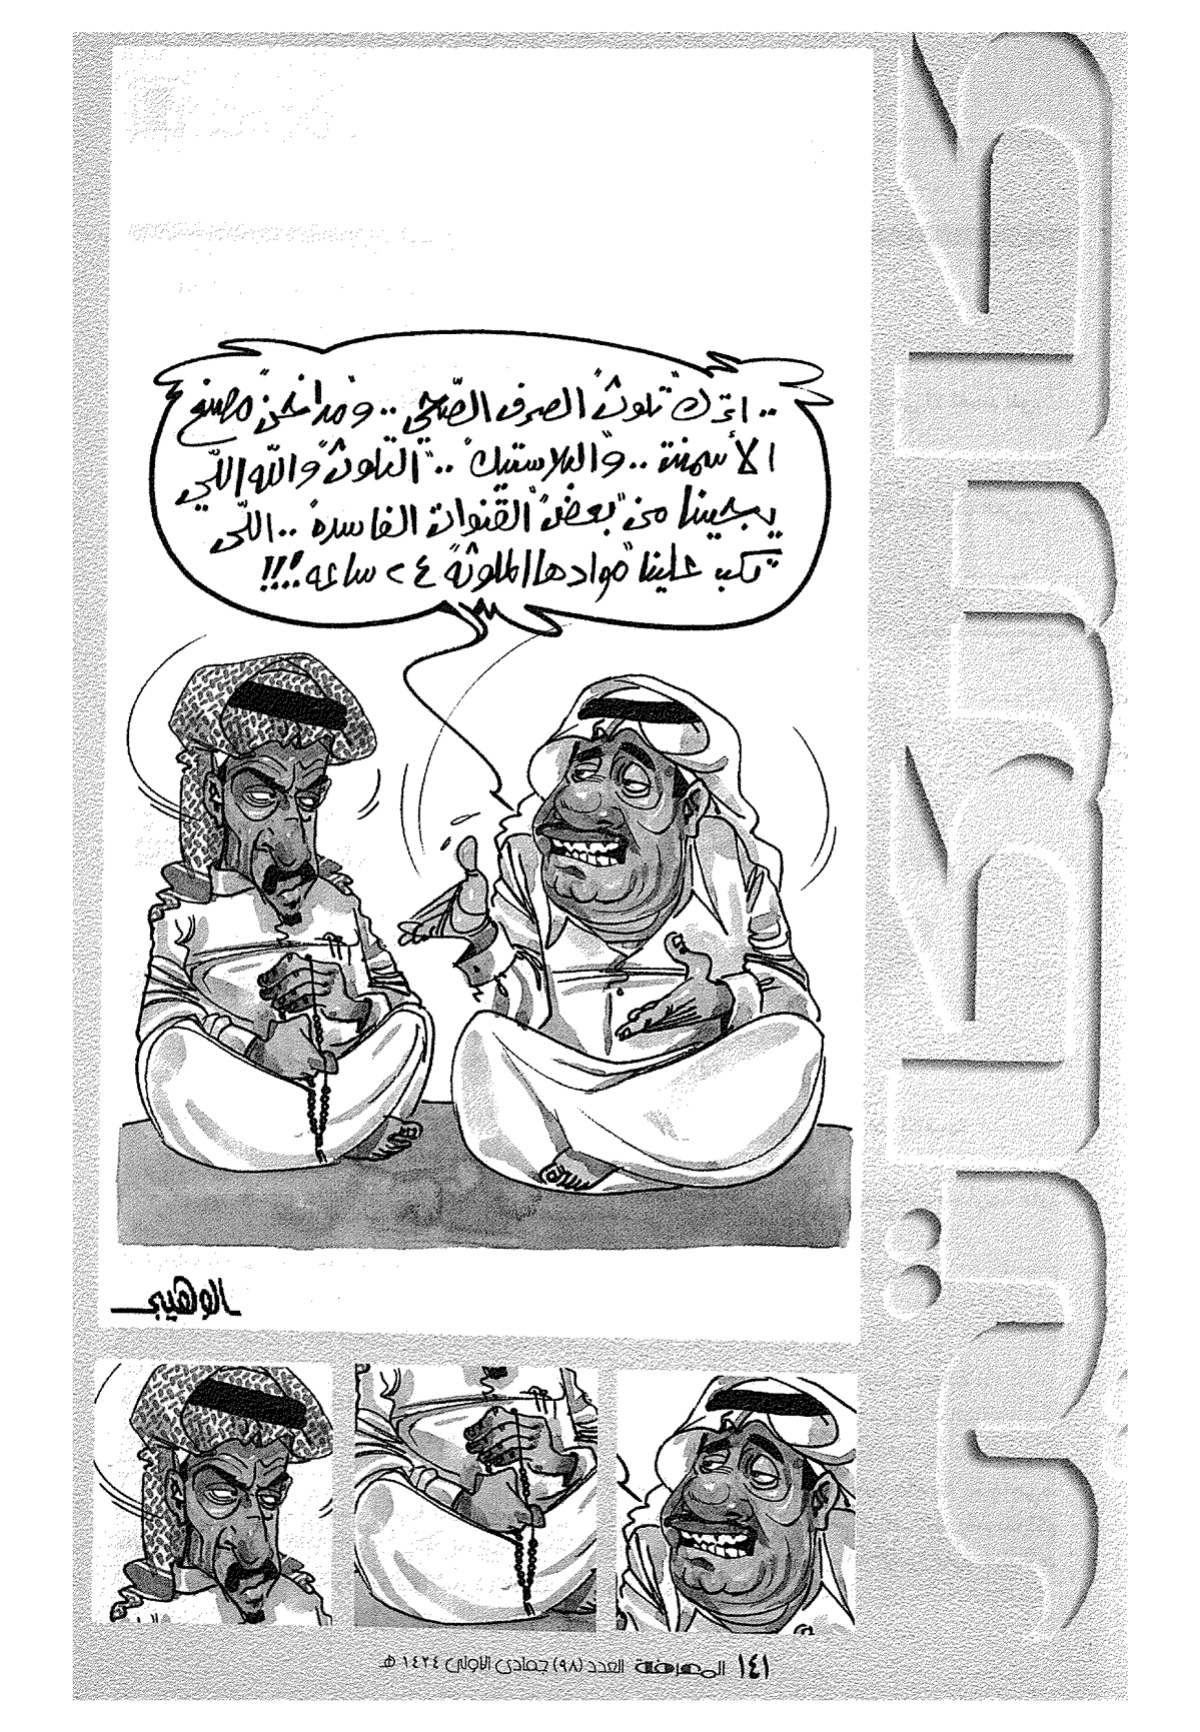 كاريكاتير
.. اترك تلوث الصرف الصّحي .. ومداخن مصنع
الأسمنت .. والبلاستيك .. التلوث والله اللّي
يجينا من بعض القنوات الفاسده .. اللّي
تكب علينا موادها الملوثة ٢٤ ساعه !!!!
الوهيبي
١٤١ المعرفة العدد (٩٨) جمادى الأولى ١٤٢٤ هـ